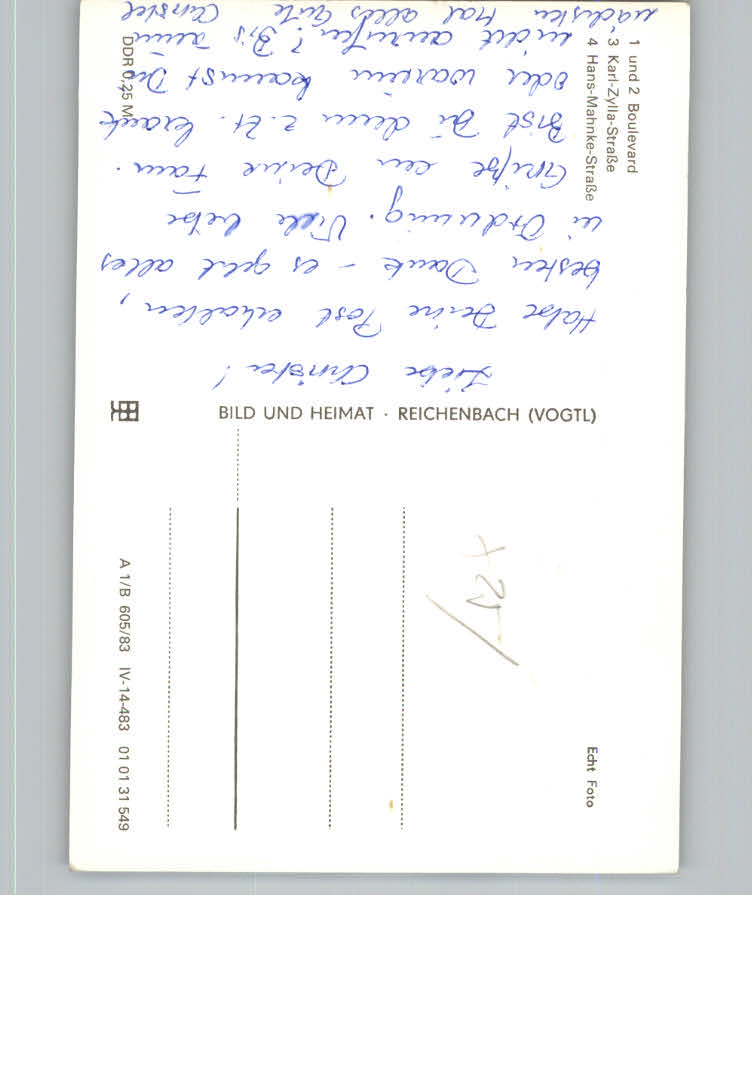 1 und 2 Boulevard
3 Karl-Zylla-Straße
4 Hans-Mahnke-Straße
Echt Foto
BILD UND HEIMAT · REICHENBACH (VOGTL)
A 1/B 605/83 IV-14-483 01 01 31 549
DDR 0,25 M
Liebe Christa!
Habe Deine Post erhalten,
besten Dank – es geht alles
in Ordnung. Viele liebe
Grüße an Deine Fam.
Bist Du denn z. Zt. krank
oder warum kannst Du
nicht anrufen? Bis zum
nächsten Mal alles Gute Christel